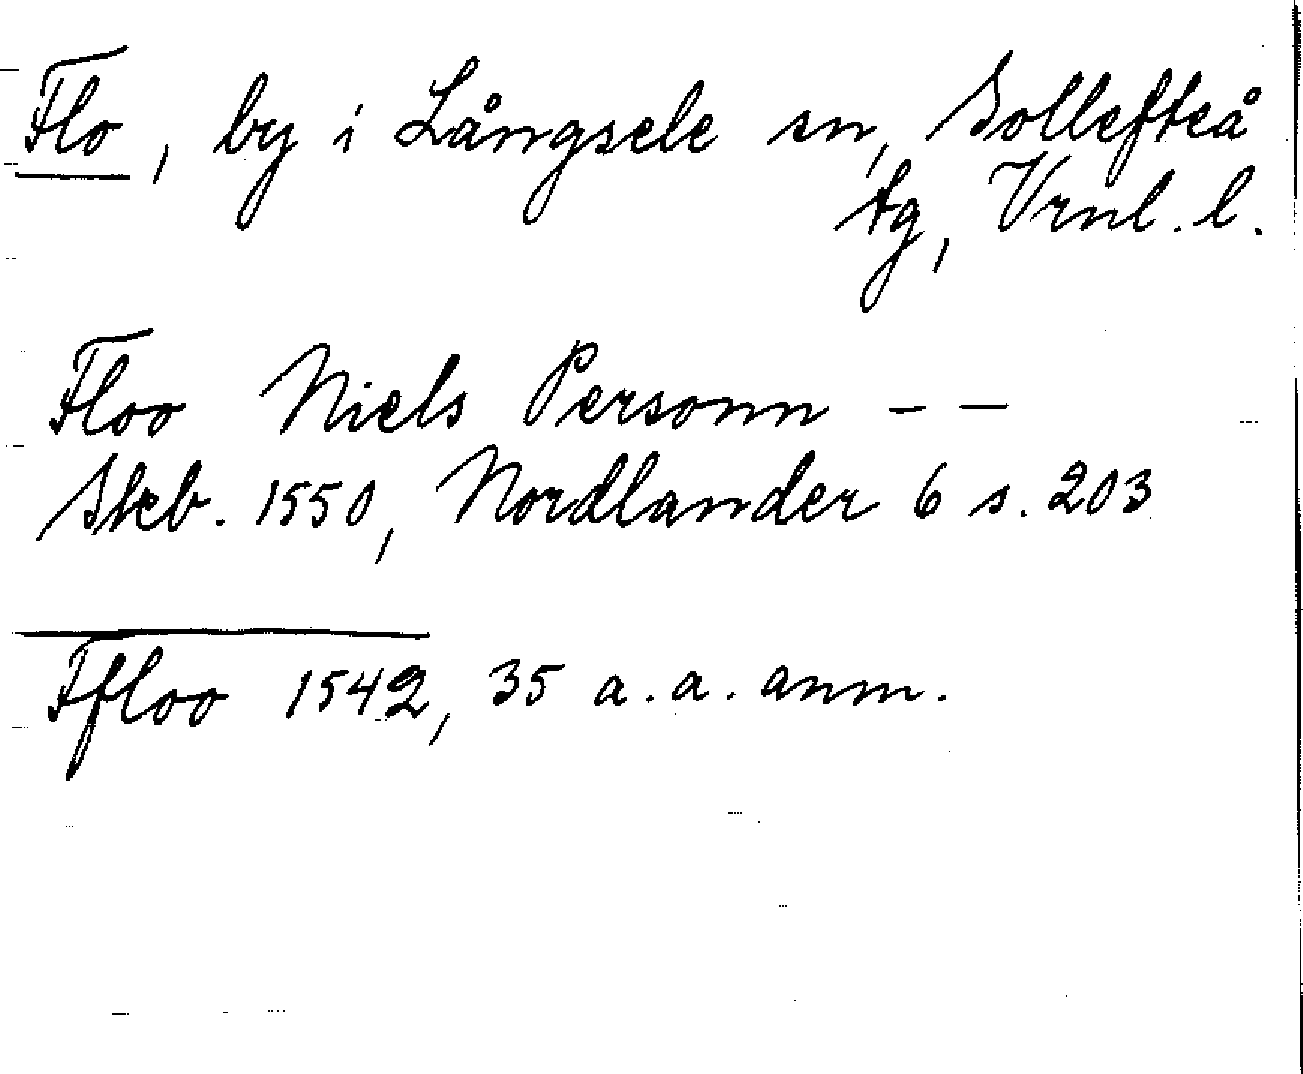 Flo, by i Långsele sn, Sollefteå
tg, Vrnl. l.
Floo Niels Personn – –
Skb. 1550, Nordlander 6 s. 203
Ffloo 1542, 35 a. a. anm.